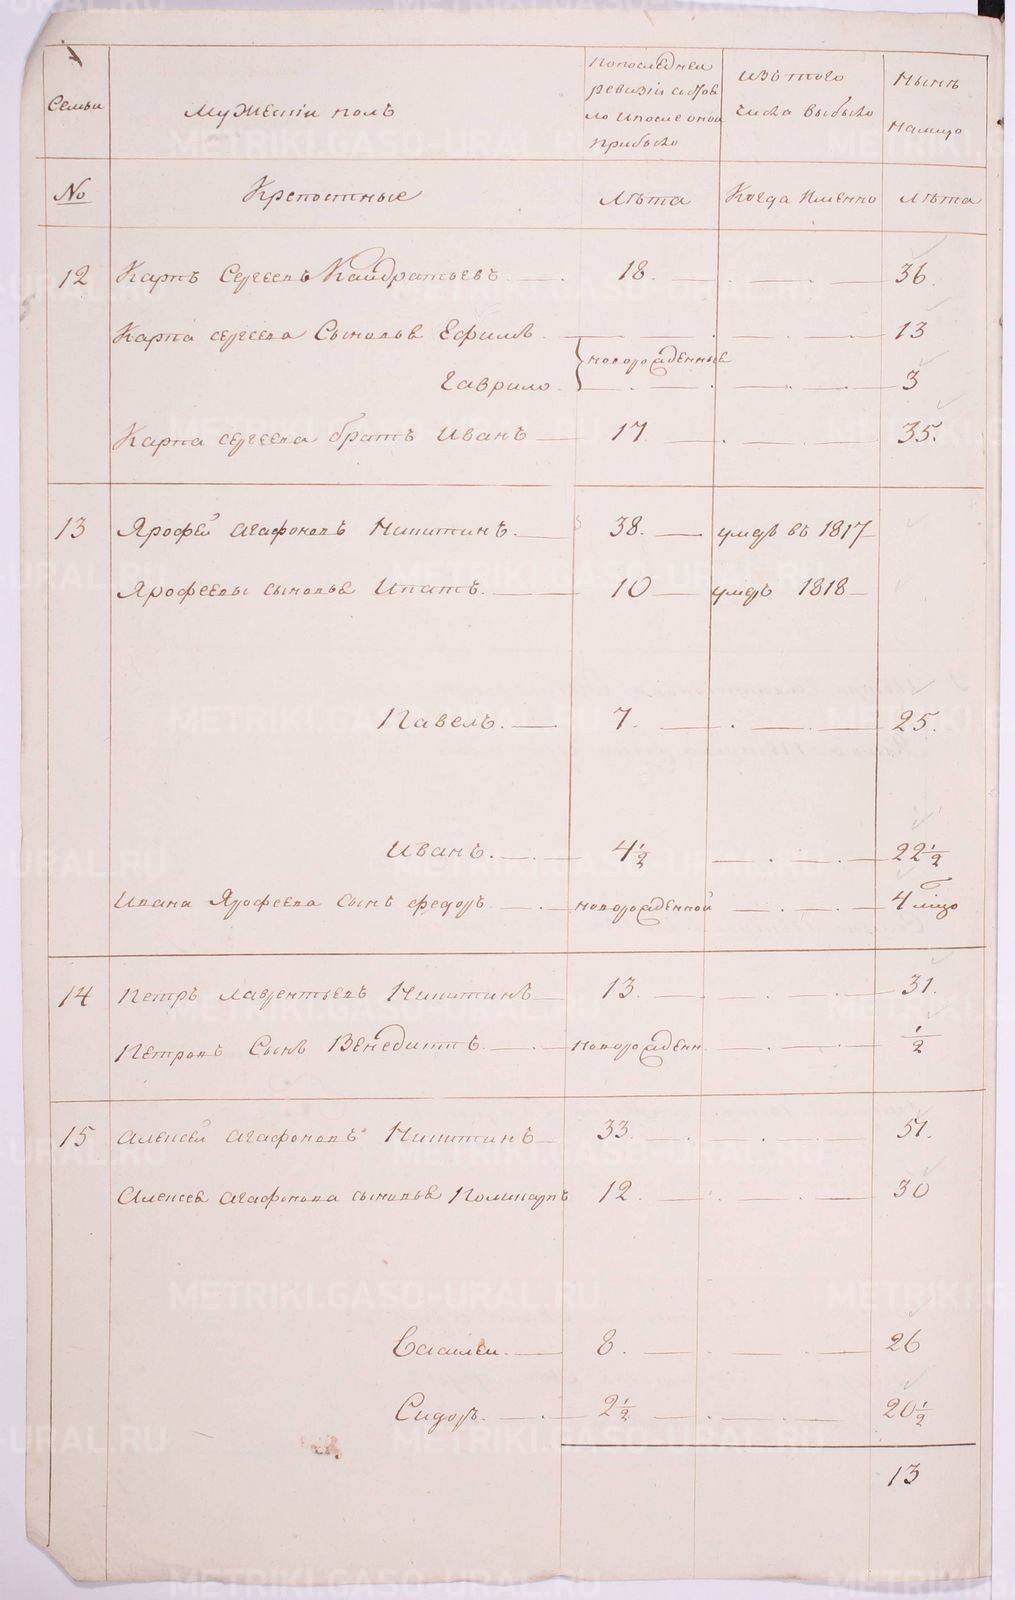 Семьи
Мужескiи полъ
Попоследнеи
ревизiи состоя
ло ипосле оной
прибыло
Изътого
числа выбыло
Нынѣ
налицо
№ Крепостные Лѣта Когда Именно Лѣта
12 Карпъ Сергеевъ Кандратьевъ 18. 36.
Карпа сергеева Сыновья Ефимъ 13
новорожденные
Гаврило 3
Карпа сергеева братъ Иванъ 17 35.
13 Ярофей агафоновъ Никитинъ 38. умеръ въ 1817
Ярофеевы сыновья Ипатъ 10 умеръ 1818
Павелъ 7. 25.
Иванъ 4 1/2 22 1/2
Ивана Ярофеева сынъ федоръ новорожденной 4
14 Петръ лаврентьевъ Никитинъ 13. 31.
Петровъ Сынъ Венедиктъ новорожденн 1/2
15 Алексей агафоновъ Никитинъ 33. 51.
Алексея агафонова сыновья Поликарпъ 12. 30
Василеи 8. 26
Сидоръ 2 1/2 20 1/2
13
METRIKI.GASO-URAL.RU